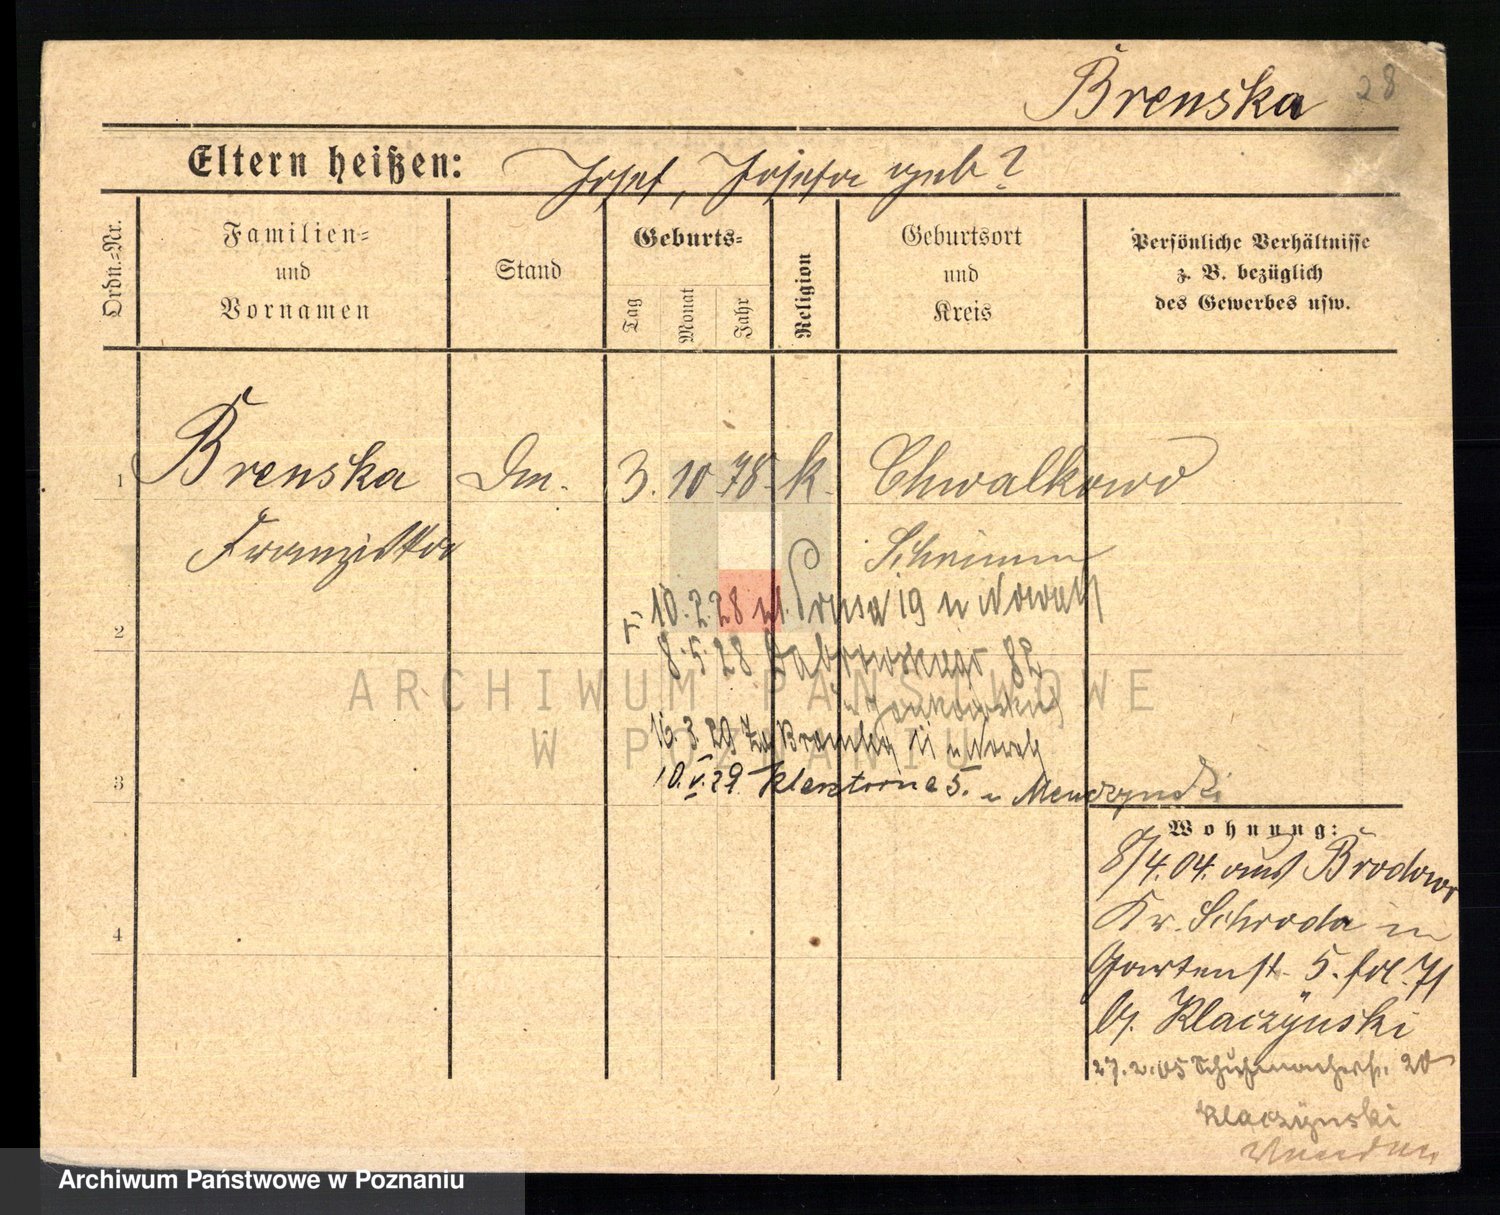 Brenska 28
Eltern heißen: Josef, Josefa geb?
Ordn.=Nr.
Familien=
und
Vornamen
Stand
Geburts=
Tag
Monat
Jahr
Religion
Geburtsort
und
Kreis
Persönliche Verhältnisse
z. B. bezüglich
des Gewerbes usw.
1 Brenska Dm. 3. 10 78. k. Chwalkowo
Franziska Schrimm
10.2.28 ul. Prusa 19 u Nowak
2
8.5.28 Dąbrowskiego 82
16.3.29 Za Bramką 11 u Nowak
3
10.V.29. Klasztorna 5. u
Wohnung:
8/4.04. aus Brodowo
Kr. Schroda in
4
Gartenst. 5. fol. 71
b. Klaczÿnski
27.2.05 Schuhmacherstr. 20
Klaczÿnski
ARCHIWUM PAŃSTWOWE
W POZNANIU
Archiwum Państwowe w Poznaniu